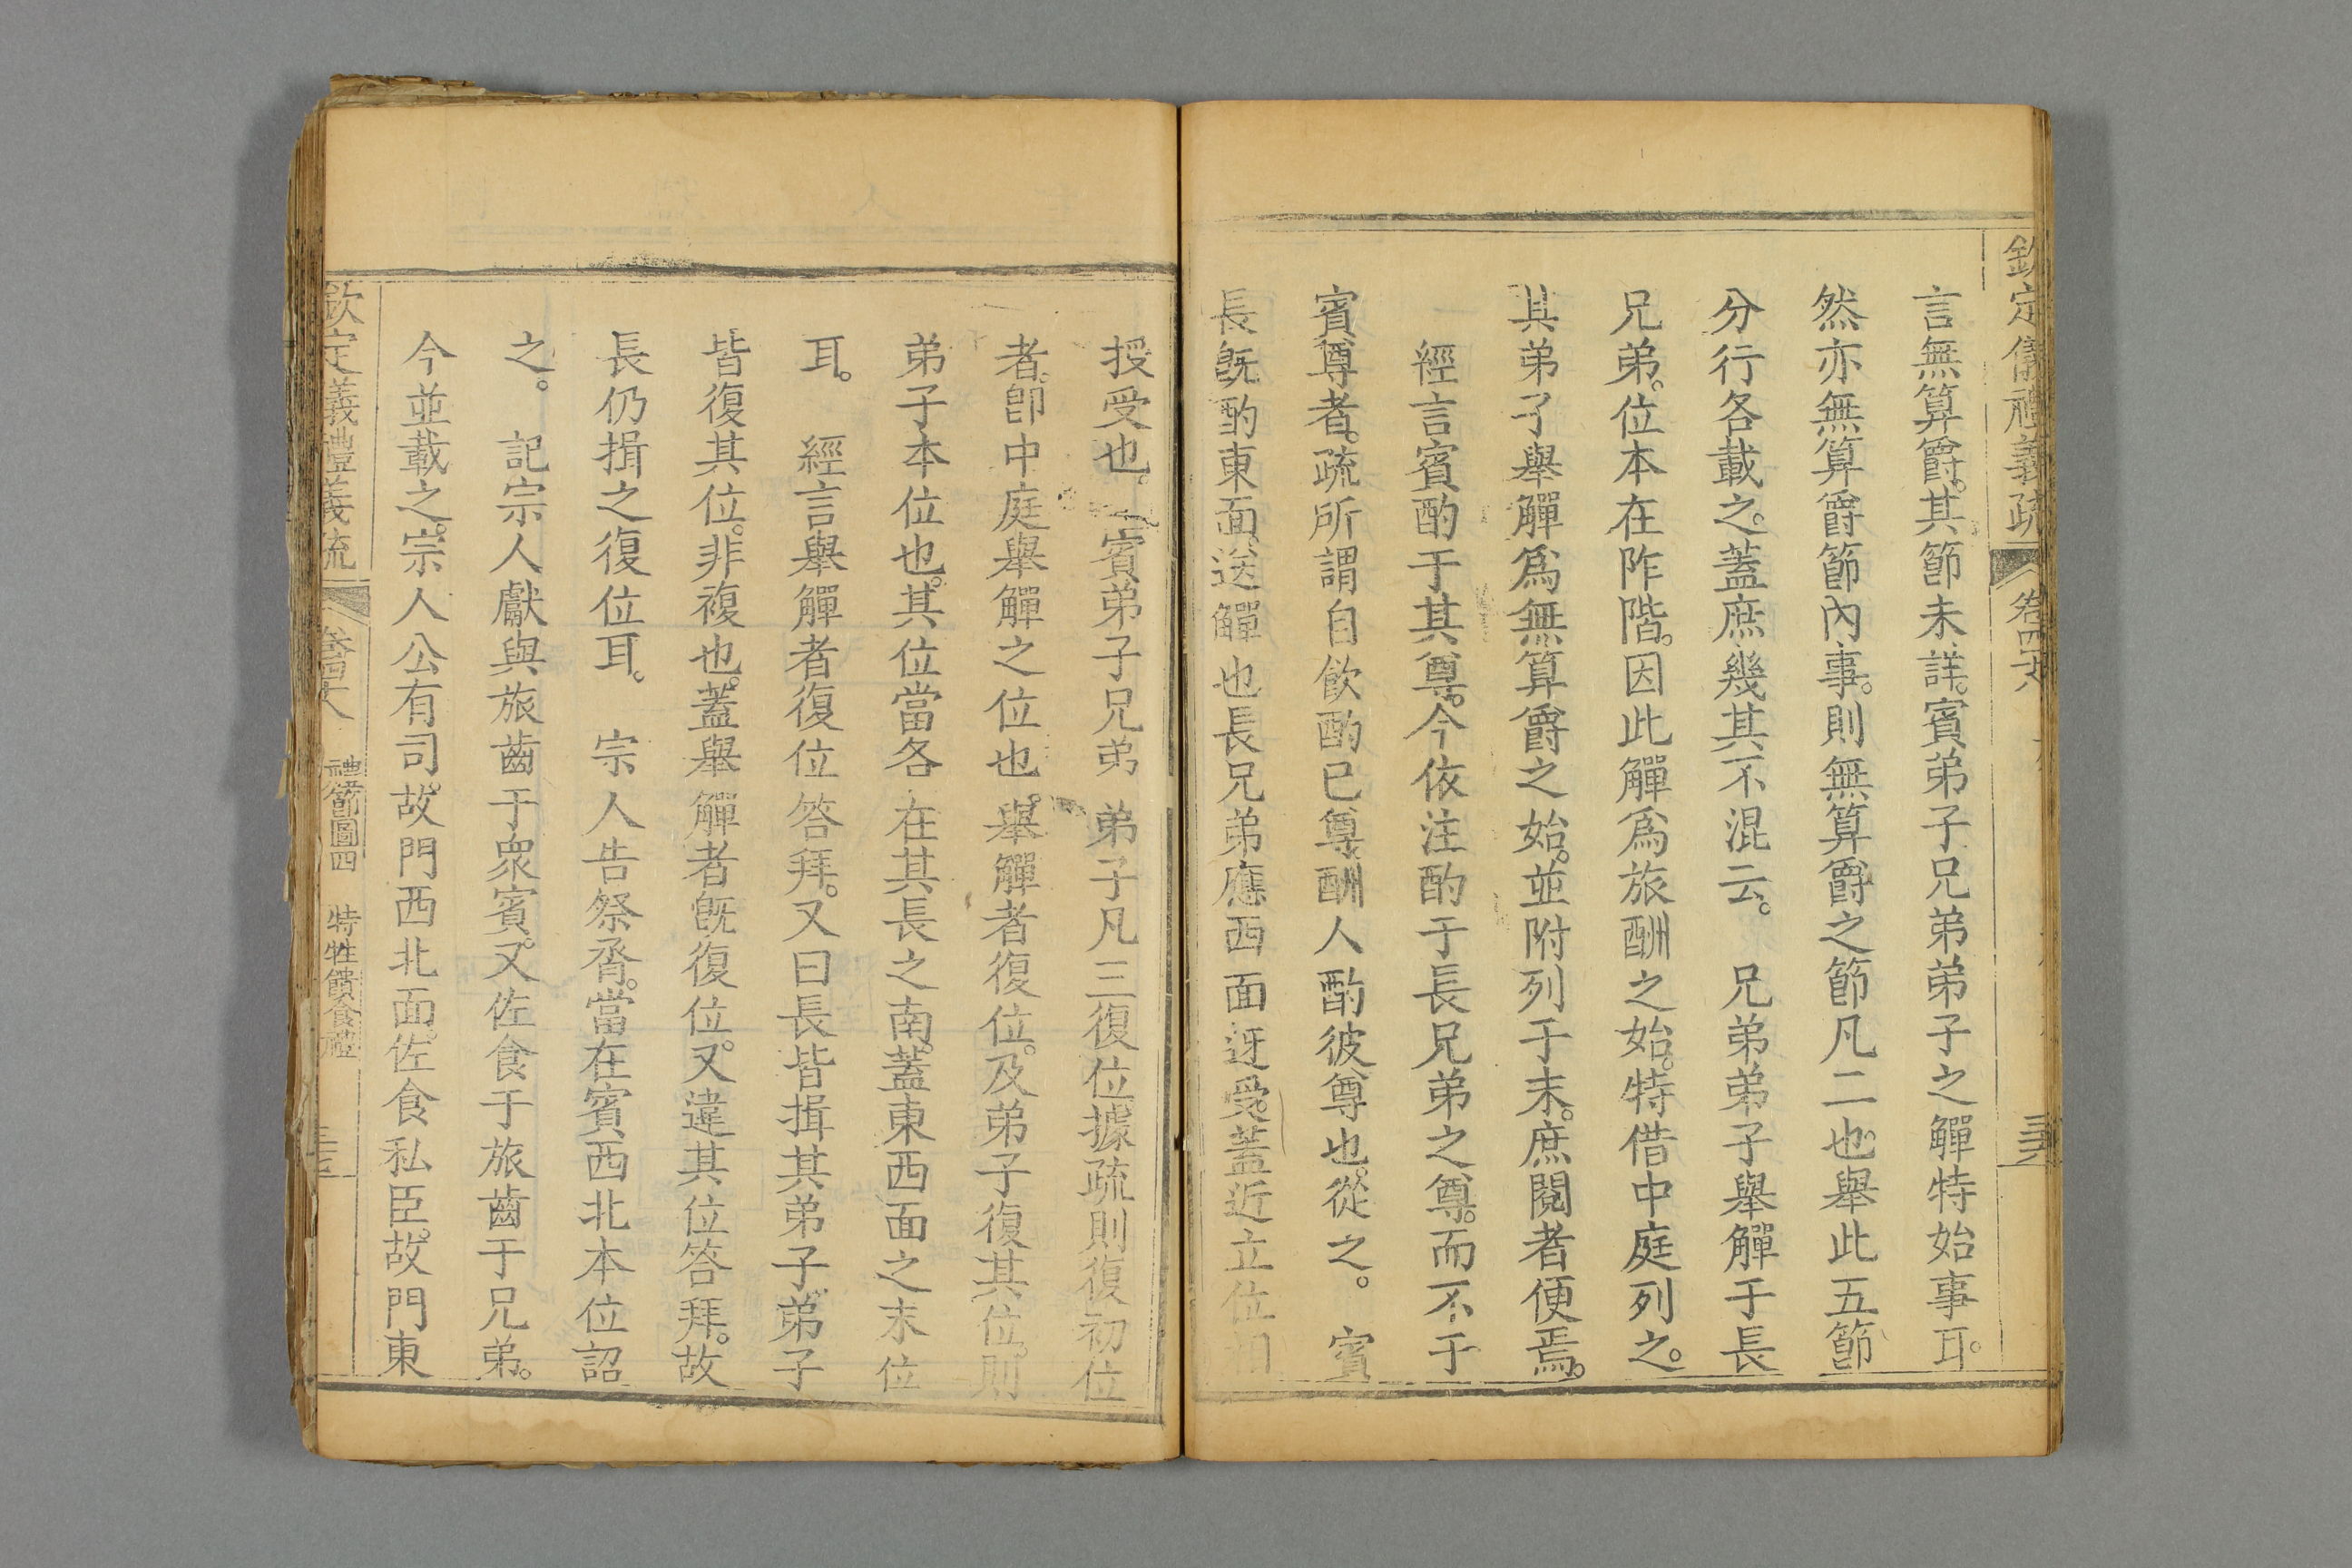 欽定儀禮義疏 卷四十六
言無算爵。其節未詳。賓弟子兄弟弟子之觶特始事耳。
然亦無算爵節內事。則無算爵之節凡二也。舉此五節
分行各載之。蓋庶幾其不混云。 兄弟弟子舉觶于長
兄弟。位本在阼階。因此觶爲旅酬之始。特借中庭列之。
其弟子舉觶爲無算爵之始。並附列于末。庶閱者便焉。
經言賓酌于其尊。今依注酌于長兄弟之尊。而不于
賓尊者。疏所謂自飲酌已尊。酬人酌彼尊也。從之。 賓
長旣酌東面。送觶也長兄弟應西面迓受。蓋近立位相
授受也。 賓弟子兄弟弟子凡三復位據疏則復初位
者。卽中庭舉觶之位也。舉觶者復位。及弟子復其位。則
弟子本位也。其位當各在其長之南。蓋東西面之末位
耳。 經言舉觶者復位答拜。又曰長皆揖其弟子。弟子
皆復其位。非複也。蓋舉觶者旣復位。又違其位答拜。故
長仍揖之復位耳。 宗人告祭脀。當在賓西北本位詔
之。 記宗人獻與旅齒于衆賓。又佐食于旅齒于兄弟。
今並載之。宗人公有司。故門西北面。佐食私臣。故門東
欽定義禮義疏 卷四十六 禮節圖四 特牲饋食禮